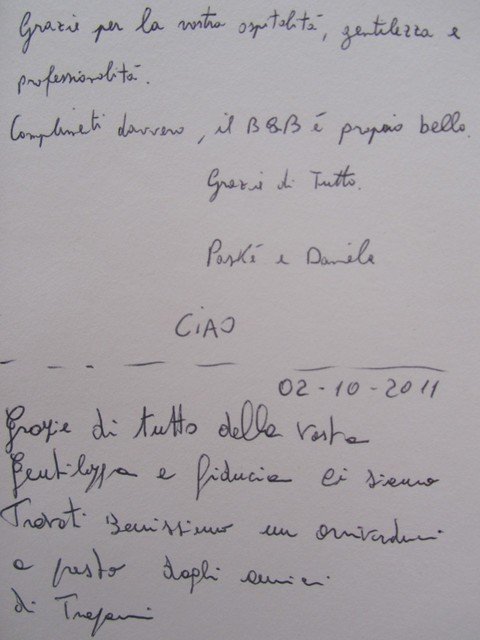 Grazie per la vostra ospitalità, gentilezza e
professionalità.
Complimeti davvero, il B&B è proprio bello.
Grazie di Tutto.
Paské e Daniela
CIAO
02-10-2011
Grazie di tutto della vostra
Gentilezza e fiducia ci siamo
Trovati Benissimo un arrivederci
a presto dagli amici
di Trapani